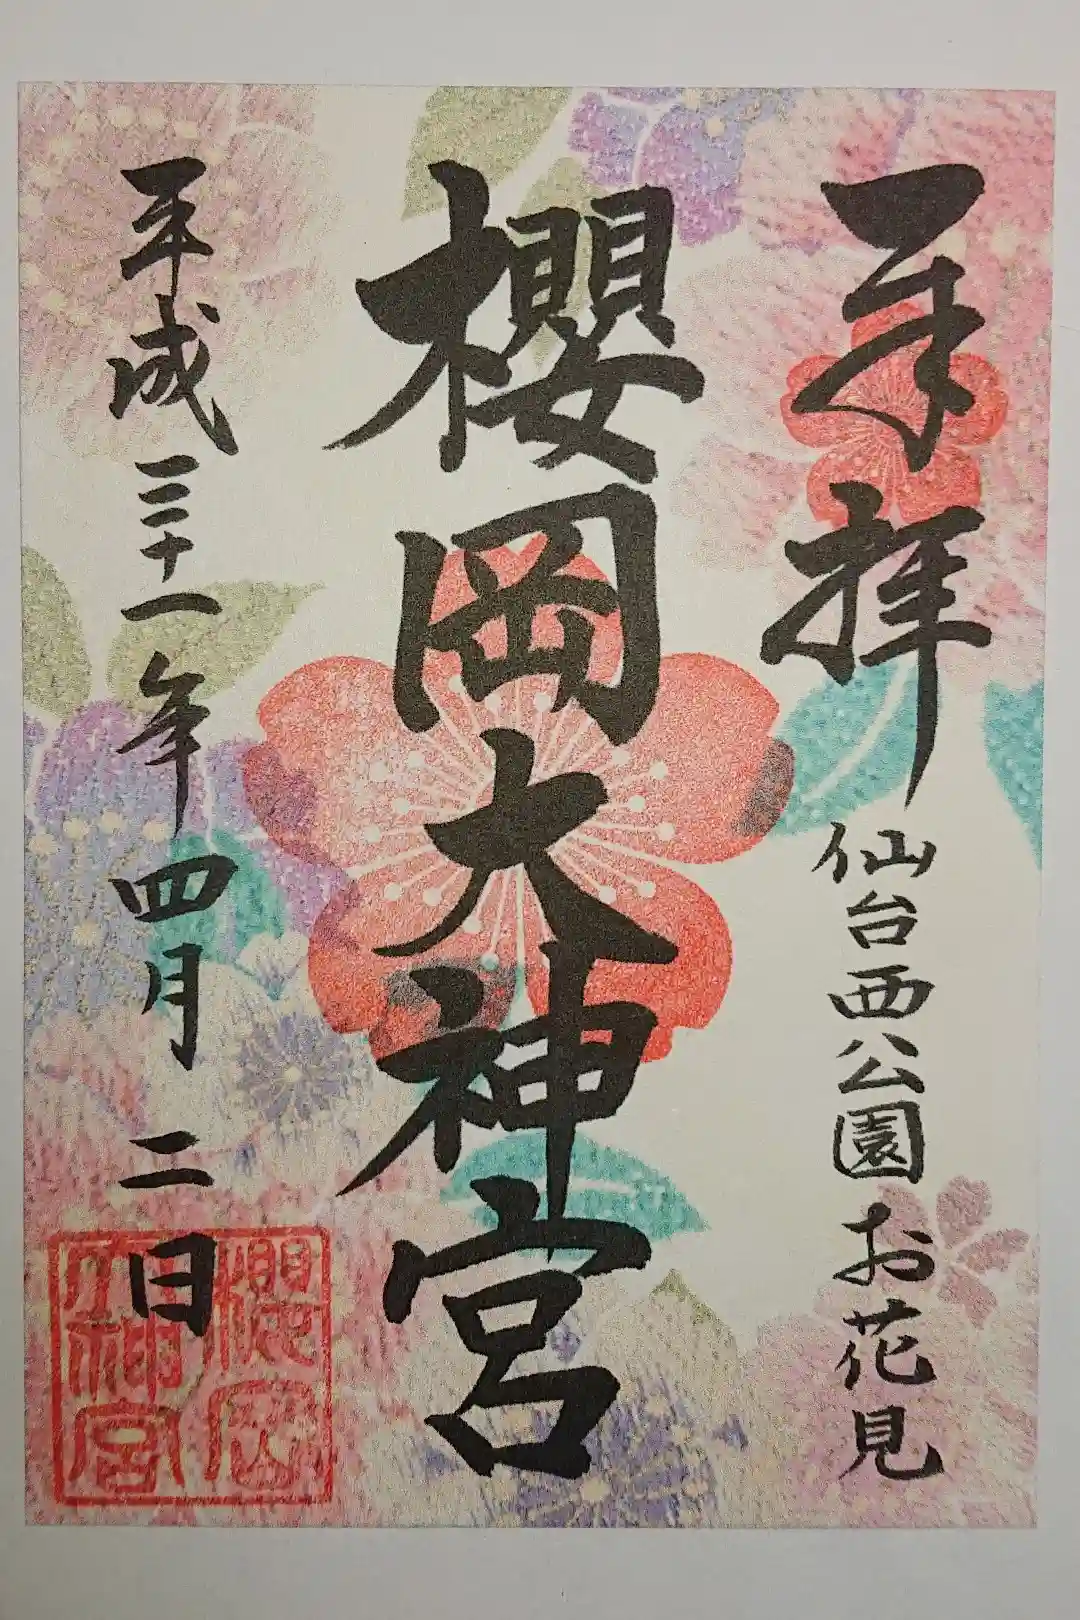 奉拝
仙台西公園お花見
櫻岡大神宮
平成三十一年四月二日
櫻岡
大神宮